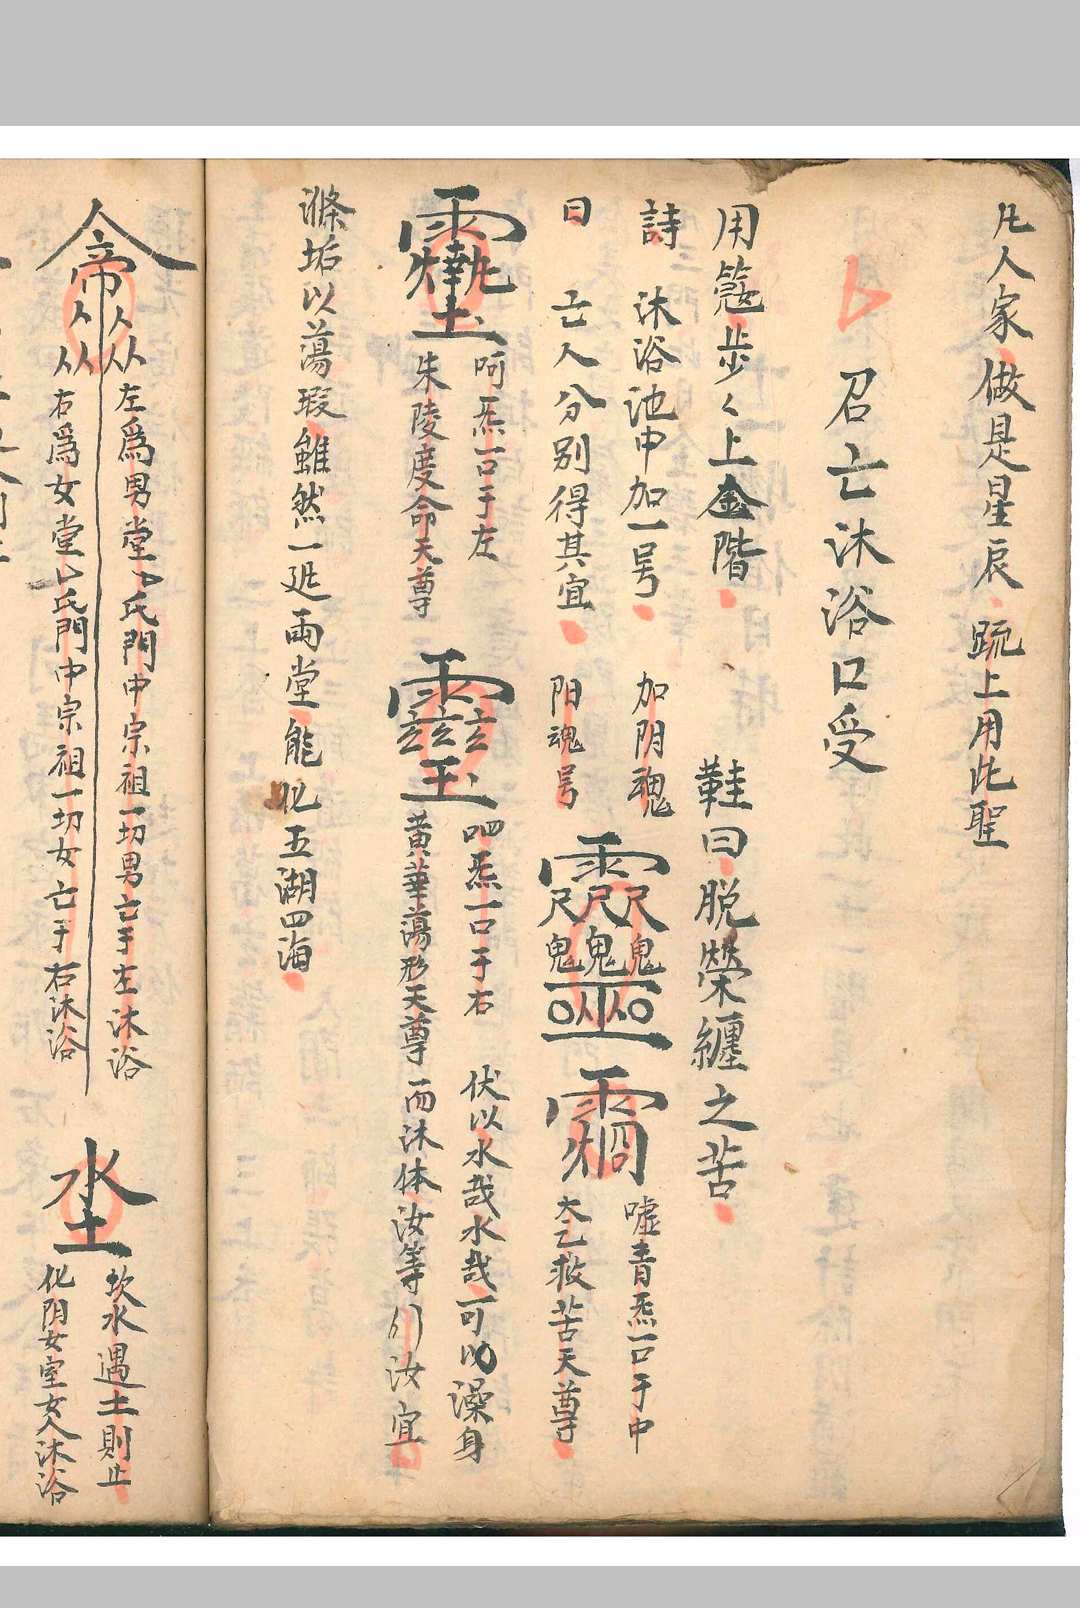 凡人家做是星辰疏上用此聖
召亡沐浴口受
用 步々上金階
鞋曰脱榮纏之苦
詩 沐浴池中加一号
曰 亡人分别得其宜
加阴魂
阳魂号
嘘青炁一口于中
太乙救苦天尊
呵炁一口于左
朱陵度命天尊
呬炁一口于右
黃華蕩形天尊
伏以水哉水哉可以澡身
而沐体汝等 汝宜
滌垢以蕩瑕雖然一 兩堂能化五湖四海
左爲男堂 氏門中宗祖一切男亡于左沐浴
右爲女堂 氏門中宗祖一切女亡于右沐浴
坎水遇土則止
化阴女室女人沐浴